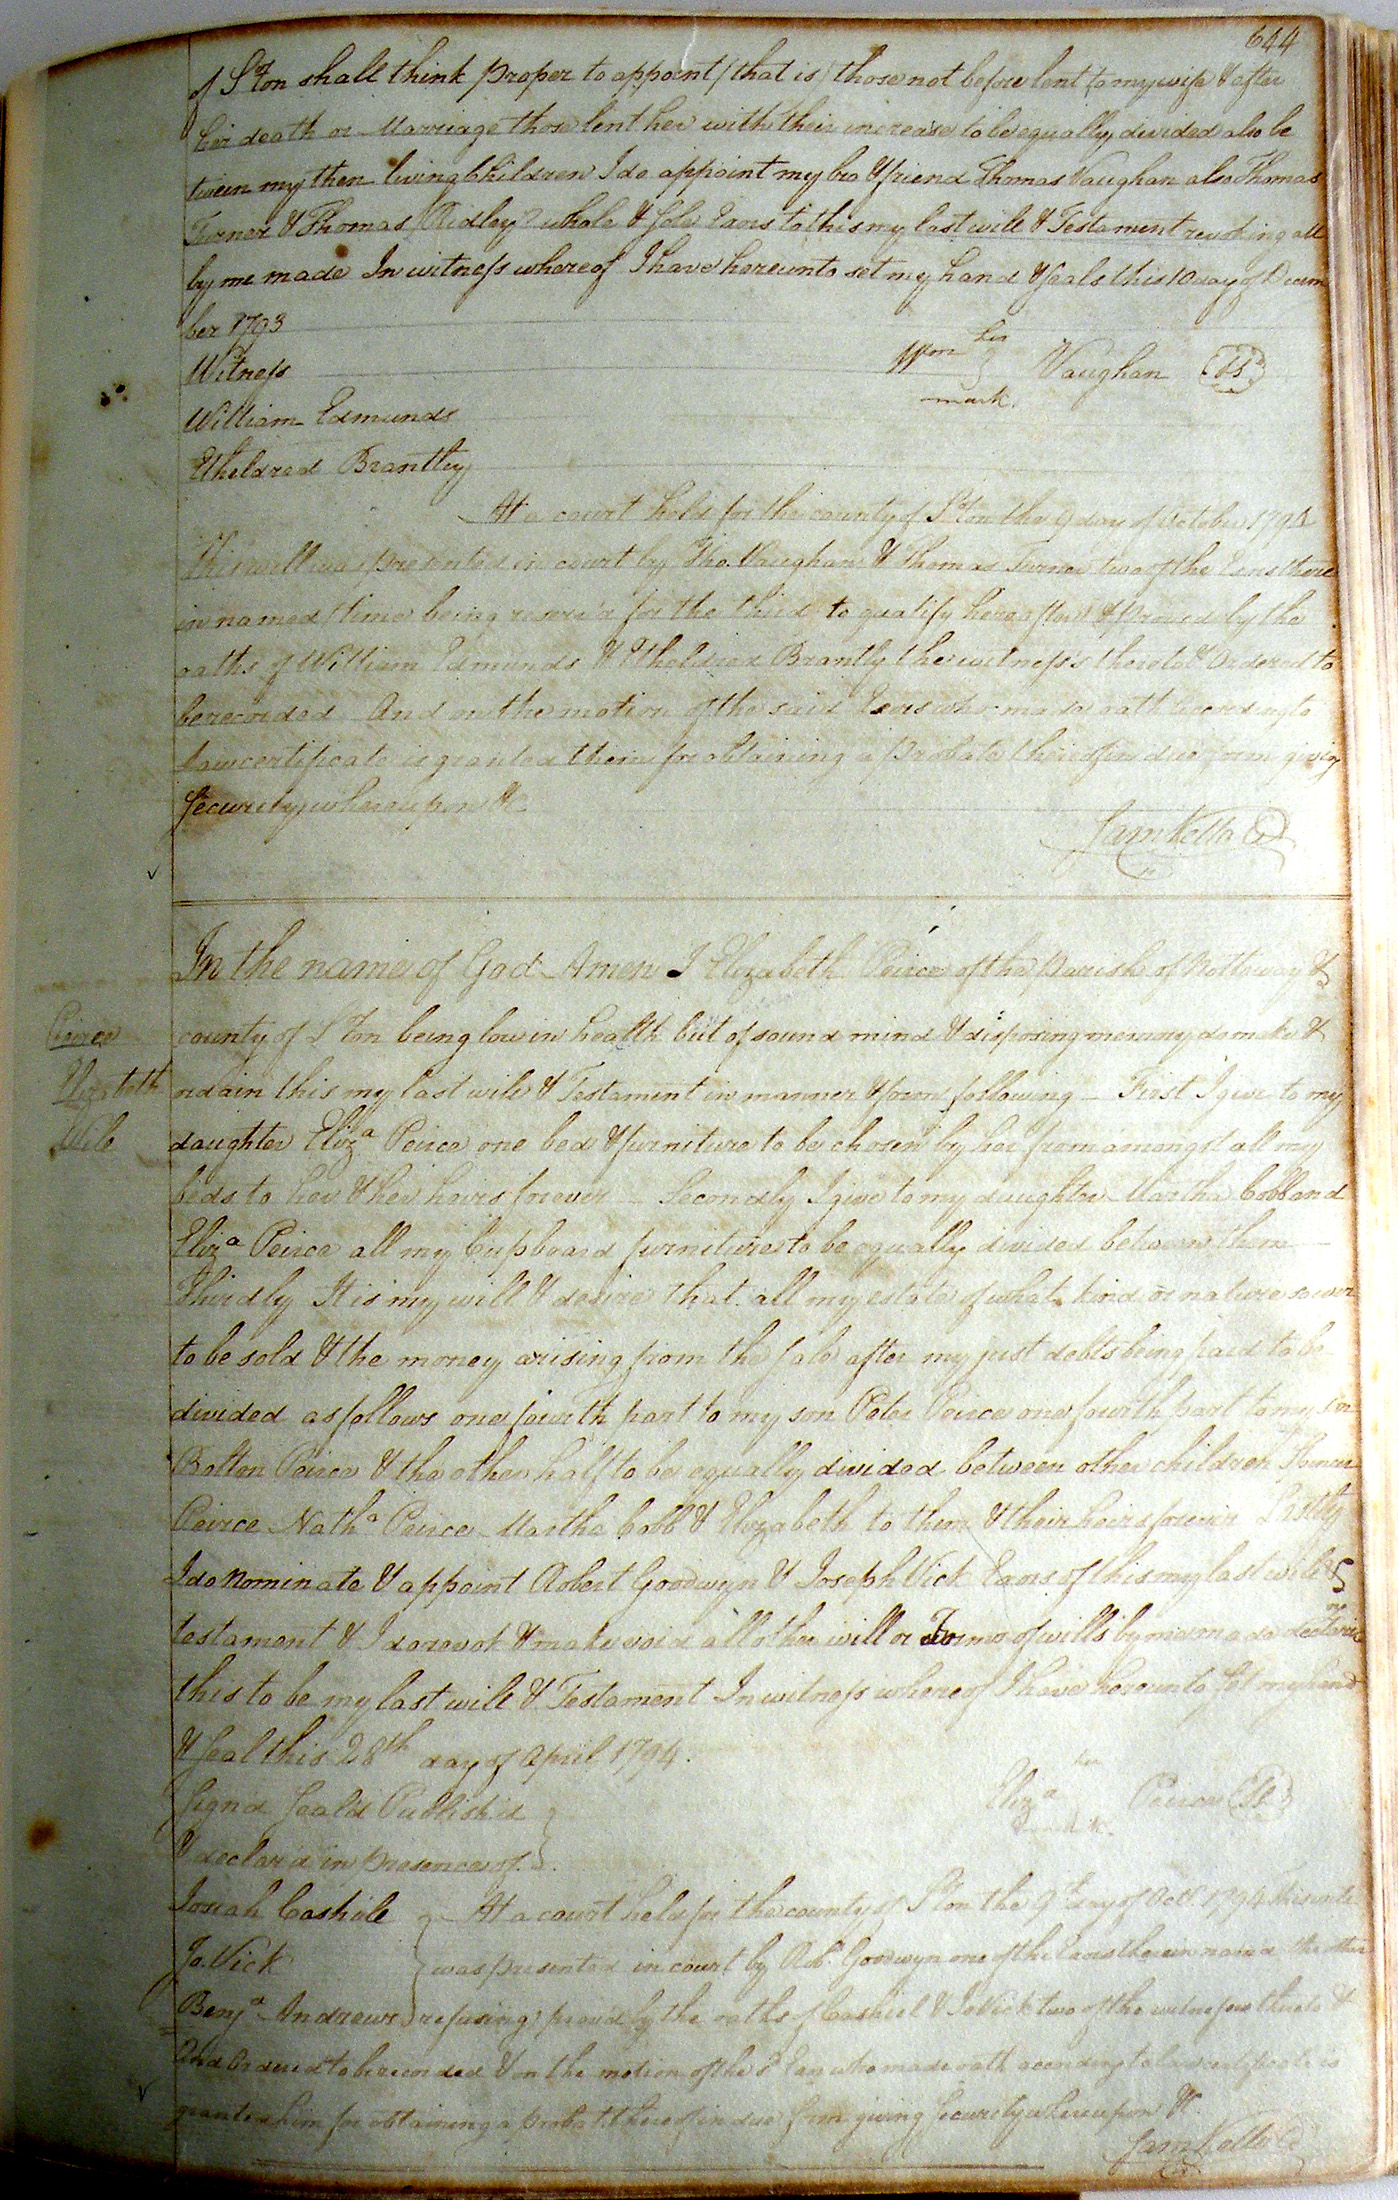 644
of S.ton shall think proper to appoint (that is) those not before lent to my wife & after
her death or Marriage those lent her with their increase to be equally divided also be
tween my then living Children I do appoint my bro & friend Thomas Vaughan also Thomas
Turner & Thomas Ridley whole & sole Exors to this my last will & Testament revoking all
by me made In witness whereof I have hereunto set my hand & seals this 10 day of Decem
ber 1793
Witness Wm his Vaughan (LS)
mark
William Edmunds
Etheldred Brantley
At a court held for the county of S.ton the 9 day of October 1794
This will was presented in court by Tho. Vaughan & Thomas Turner two of the Exors there
in named (time being reserv'd for the third to qualify hereafter) & Proved by the
oaths of William Edmunds & Etheldred Brantly the witness's thereto & Ordered to
be recorded And on the motion of the said Exors who made oath according to
law certificate is granted them for obtaining a Probate thereof in due form giving
Security whereupon &c
Sam Kello C
In the name of God Amen I Elizabeth Peirce of the Parish of Nottoway &
Peirce
Elizabeth
Wile
county of S.ton being low in health but of sound mind & disposing memory do make &
ordain this my last will & Testament in manner & form following First I give to my
daughter Eliza Peirce one bed & furniture to be chosen by her from amongst all my
beds to her & her heirs forever Secondly I give to my daughter Martha Cobb and
Eliza Peirce all my Cupboard furniture to be equally divided between them
Thirdly It is my will & desire that all my estate of what kind or nature soever
to be sold & the money arising from the sale after my just debts being paid to be
divided as follows one fourth part to my son Peter Peirce one fourth part to my son
Bolton Peirce & the other half to be equally divided between other children Spencer
Peirce Natha Peirce Martha Cobb & Elizabeth to them & their heirs forever Lastly
I do Nominate & appoint Robert Goodwyn & Joseph Vick Exors of this my last will &
testament & I do revok & make void all other will or Forms of wills by me made declaring
this to be my last will & Testament In witness whereof I have hereunto Set my hand
& Seal this 28th day of April 1794.
Sign'd Seal'd Publish'd Eliza her Peirce (LS)
mark
& declar'd in presence of
Josiah Cashile At a court held for the county of S.ton the 9th day of Octr 1794 This will
Jo. Vick was presented in court by Robt Goodwyn one of the Exors therein named the other
Benja Andrews refusing proved by the oaths of Cashiel & Jo Vick two of the witnesses thereto &
And Ordered to be recorded & on the motion of the sd Exor who made oath according to law certificate is
granted him for obtaining a probat thereof in due form giving Security whereupon &c
Sam Kello C